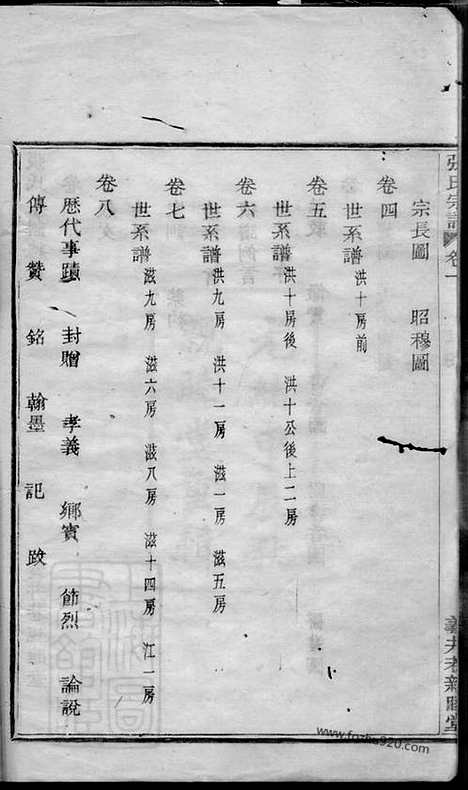 張氏宗譜 卷一
宗長圖 昭穆圖
卷四
世系譜 洪十房前
卷五
世系譜 洪十房後 洪十公後上二房
卷六
世系譜 洪九房 洪十一房 滋一房 滋五房
卷七
世系譜 滋九房 滋六房 滋八房 滋十四房 江一房
卷八
歷代事蹟 封贈 孝義 鄉賓 節烈 論說
傳 贊 銘 翰墨 記 跋
www.fozhu920.com